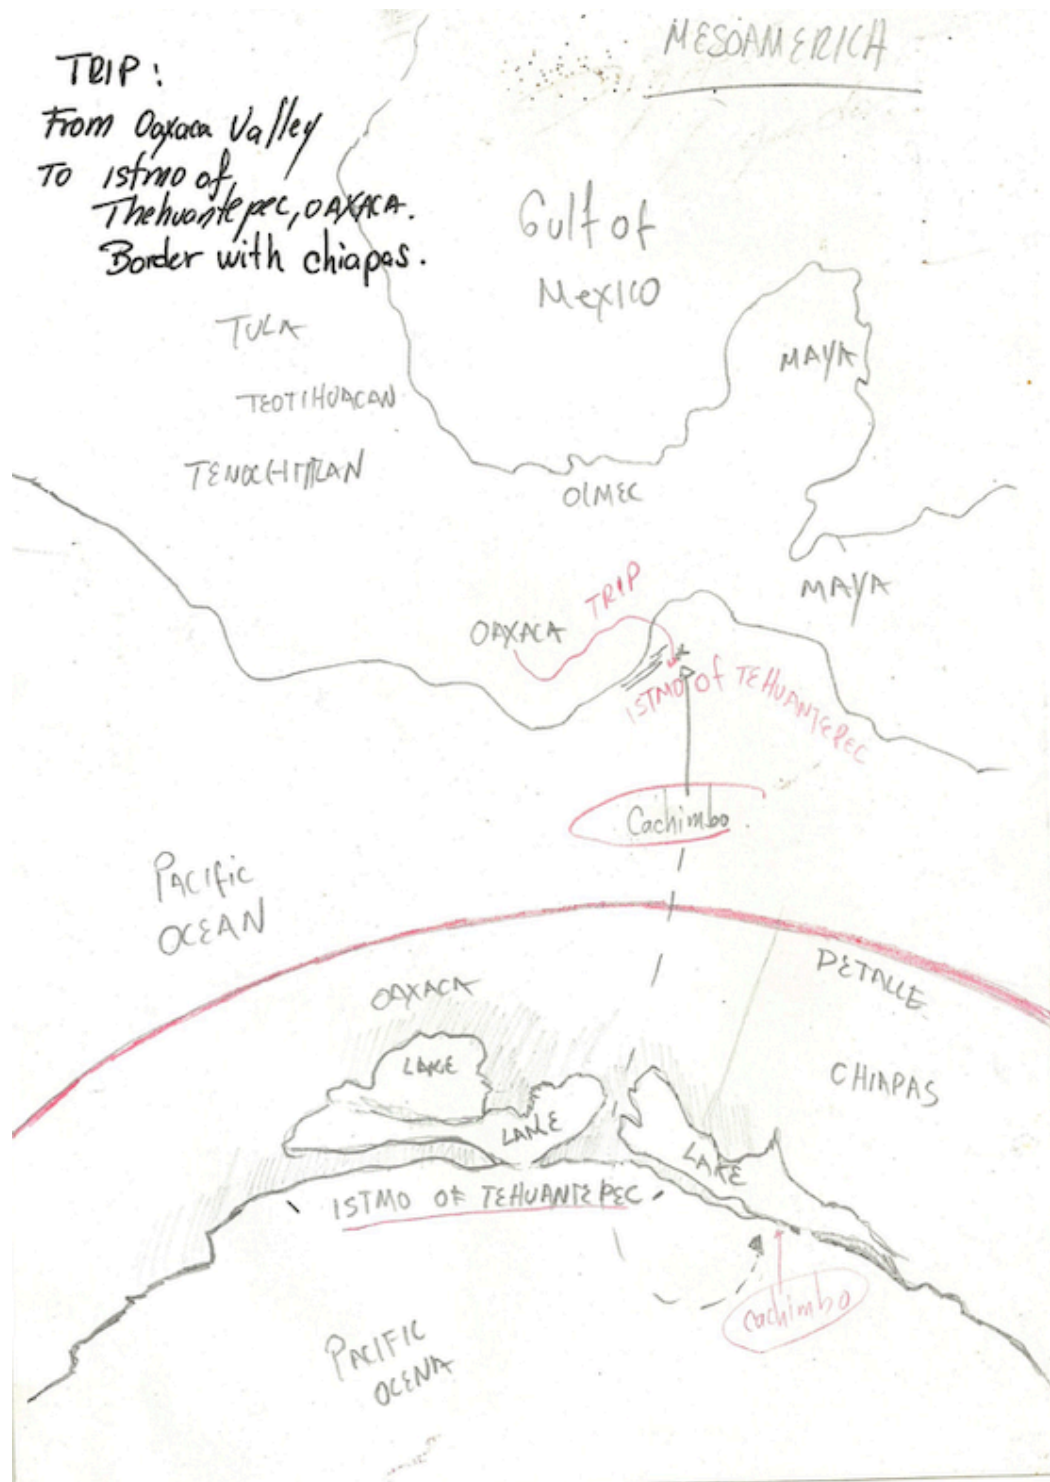 MESOAMERICA
TRIP:
From Oaxaca Valley
To istmo of
Thehuantepec, OAXACA.
Border with chiapas.
Gulf of
MexICO
TULA
TEOTIHUACAN
TENOCHTITLAN
MAYA
OLMEC
MAYA
OAXACA
TRIP
ISTMO of TEHUANTEPEC
Cachimbo
PACIfic
OCEAN
DETALLE
OAXACA
CHIAPAS
LAKE
LAKE
LAKE
ISTMO OF TEHUANTEPEC
Cachimbo
PACIFIC
OCENA